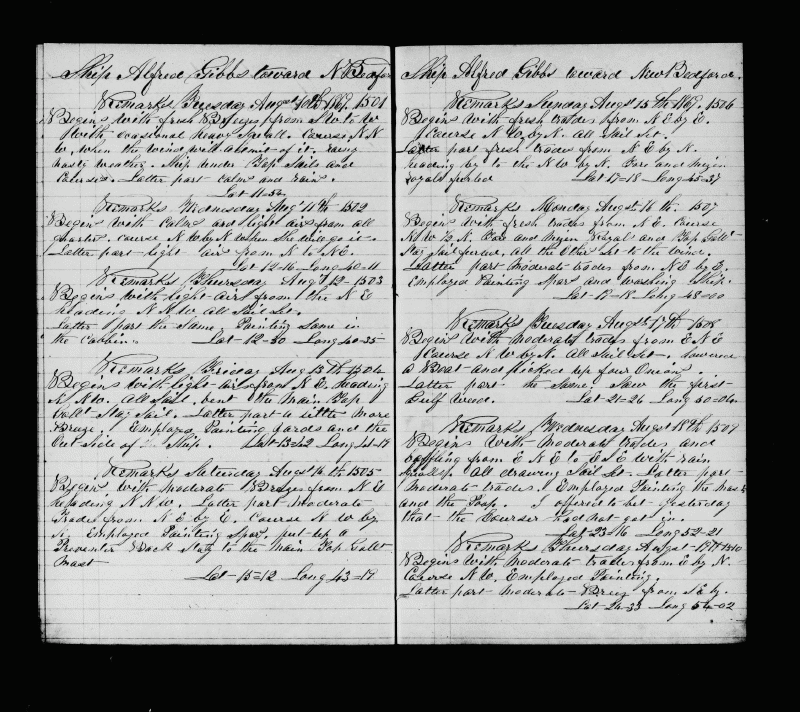 Ship Alfred Gibbs toward N Bedford
Remarks Tuesday Augst 10th 1869. 1501
Begins with fresh Brezes from S W to W
with ocasional heavy Squall. Caurse N N
W. when the wind will admit of it. rainy
nasty weather. Ship under Top Sails and
Courses. Latter part calm and rain.
Lat 11=52
Remarks Wednesday Aug 11th 1502
Begins with Calms and light airs from all
quarters. course N W by N when she will go it.
Latter part light airs from N to N E.
Lat 12=16 Long 40=11
Remarks Thursday Aug 12 - 1503
Begins with light airs from the N E
heading N N W all Sail Set.
Latter part the Same. Painting Some in
the Cabbin. Lat 12=30 Long 40=35
Remarks Friday Aug 13th 1504
Begins with light airs from N E. heading
N N W. All Sail. bent the Main Top
Gall Stay Sail. Latter part a little more
Breeze. Employed Painting yards and the
Out Side of the Ship. Lat 13=42 Long 41=17
Remarks Saturday Augst 14th 1505
Begins with moderate Brezes from N E
heading N N W. Latter part moderate
Trades from N E by E. Course N W by
N. Employed Painting Spar. put up a
Preventer Back Stay to the Main Top Gallt
Mast
Lat 15=12 Long 43=17
Ship Alfred Gibbs toward New Bedford.
Remarks Sunday Augst 15th 1869. 1506
Begins with fresh trades from N E by E.
Caurse N W by N. All Sail Set.
Latter part fresh trades from N E by N.
heading by to the N W by N. Fore and
royals furled Lat 17=18 Long 45=37
Remarks Monday Augst 16th 1507
Begins with fresh trades from N E. Caurse
N W by N. Fore and Royal and Top Gall
Stay Sail furled, all the Other Set to the Wind.
Latter part moderate trades from N E by E.
Employed Painting Spar and Washing Ship.
Long 48=00
Remarks Tuesday Augst 17th 1508
Begins with moderate trades from E N E
Caurse N W by N. All Sail Set. Lowered
a Boat and picked up four
Latter part the Same. Saw the first
Gulf Weed. Lat 21=24 Long 50=04
Remarks Wednesday Augst 18th 1509
Begins with moderate trades and
baffling from E N E to E S E with rain
All drawing Sail Set. Latter part
moderate trades. Employed Painting the mast
and the Poop. I offered to bet yesterday
that the Courser had not got in.
Lat 23=16 Long 52=21
Remarks Thursday Augst 19th 1510
Begins with moderate trades from E by N.
Caurse N W. Employed Painting.
Latter part moderate Breez from by.
Lat 24=33 Long 54=02